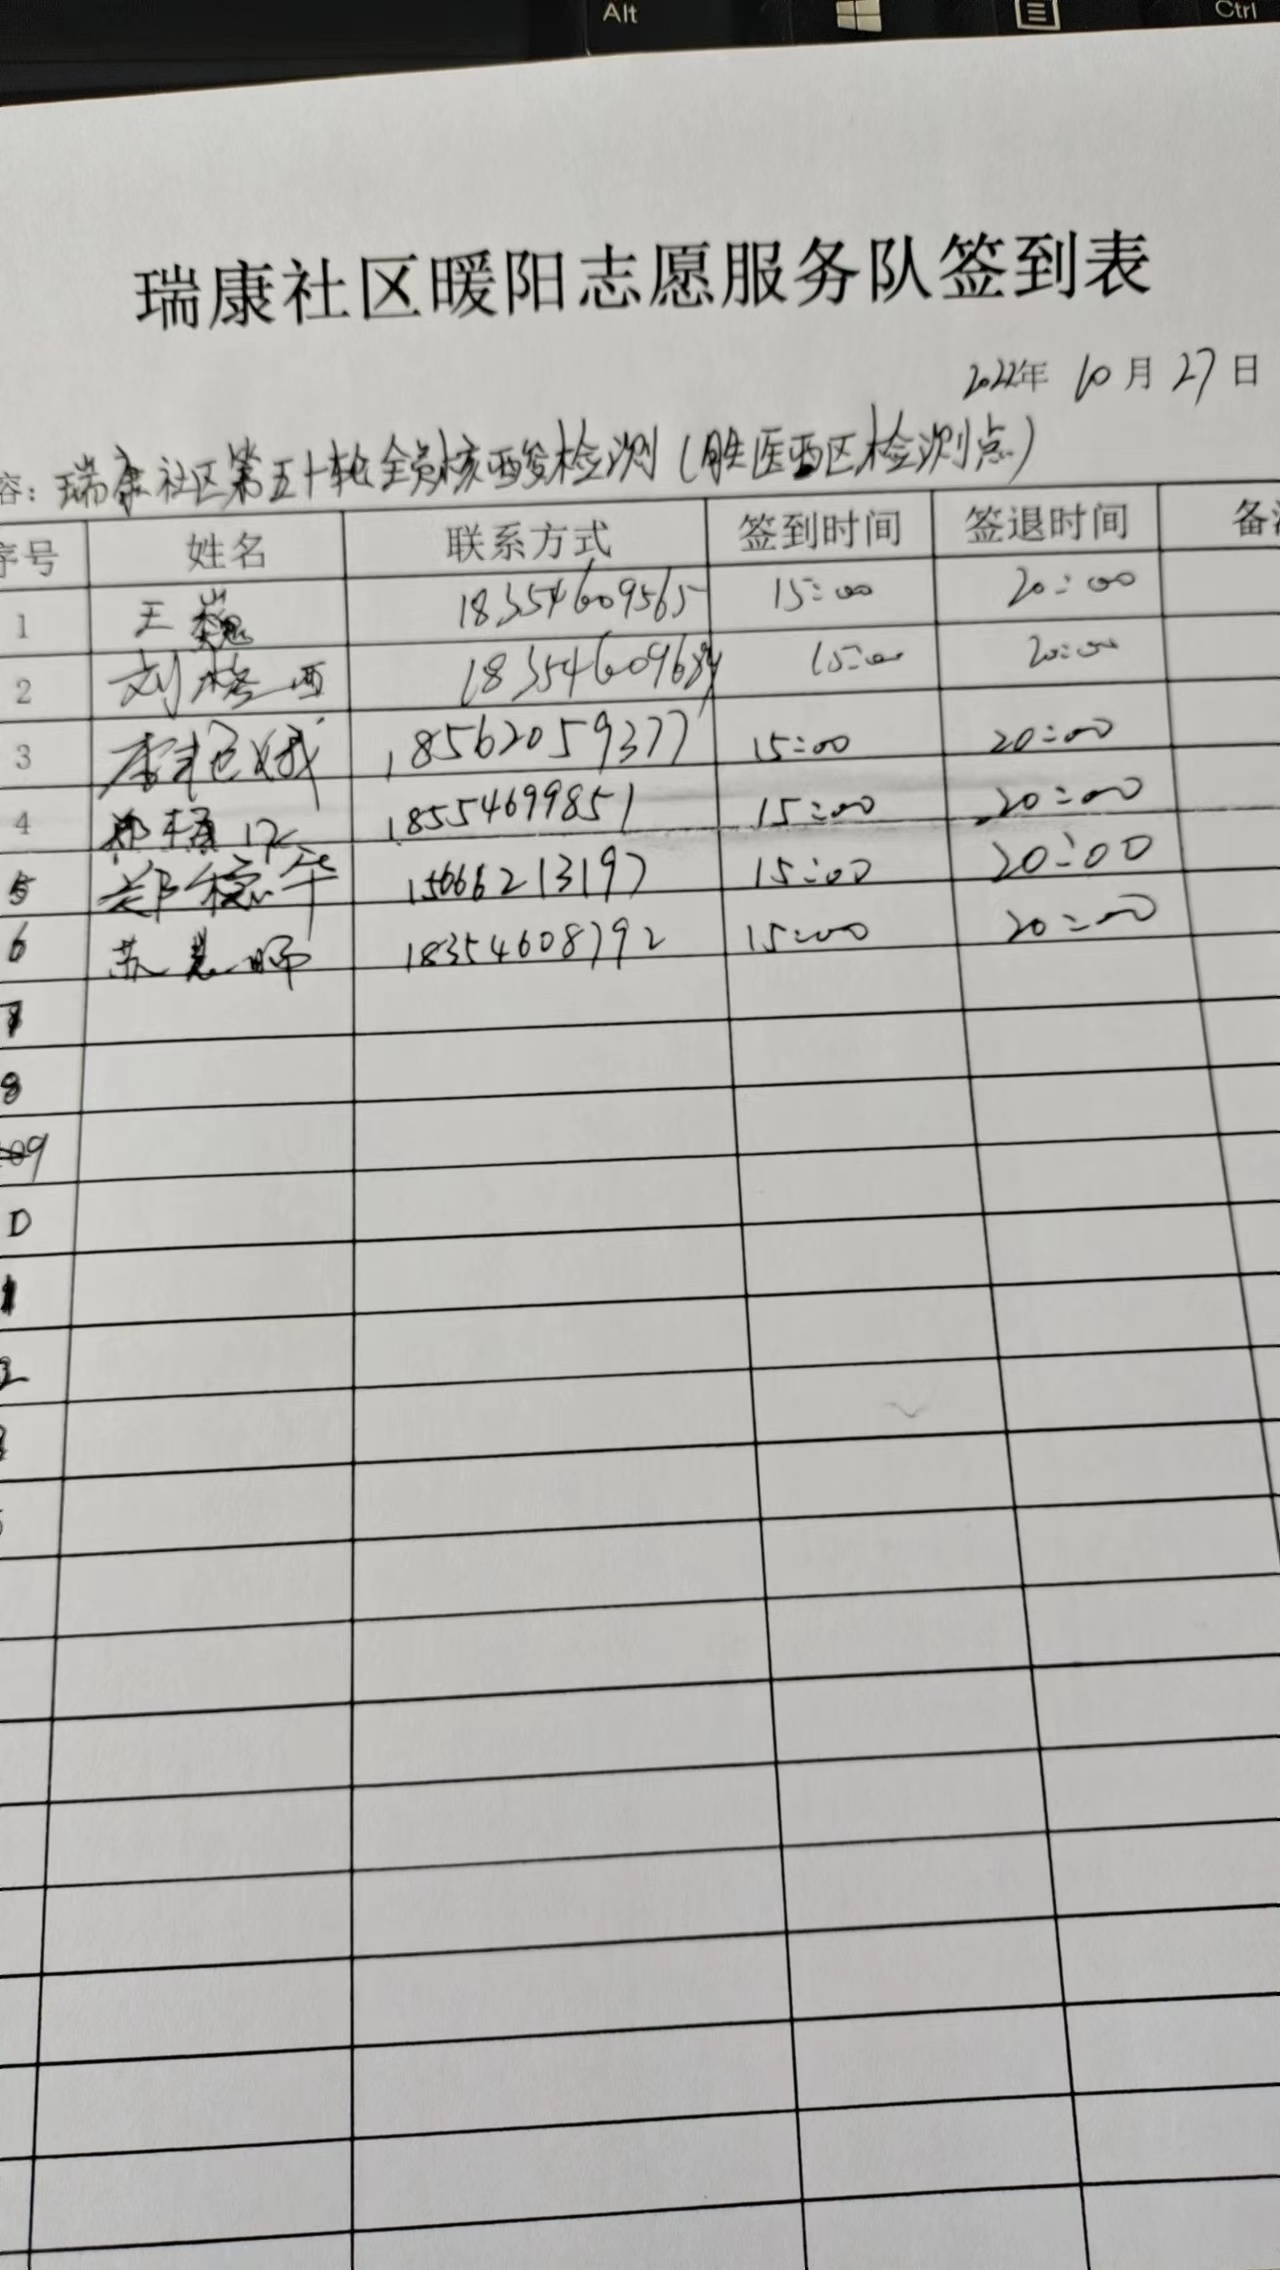 Alt
Ctrl
瑞康社区暖阳志愿服务队签到表
2022年 10月 27日
容：瑞康社区第五十轮全员核酸检测（胜医西区检测点）
序号 姓名 联系方式 签到时间 签退时间 备注
1 王巍 18354609565 15:00 20:00
2 刘 西 18354609684 15:00 20:00
3 李艳娥 18562059377 15:00 20:00
4 郑 18554699851 15:00 20:00
5 郑德华 15666213197 15:00 20:00
6 苏 18354608792 15:00 20:00
7
8
9
0
1
2